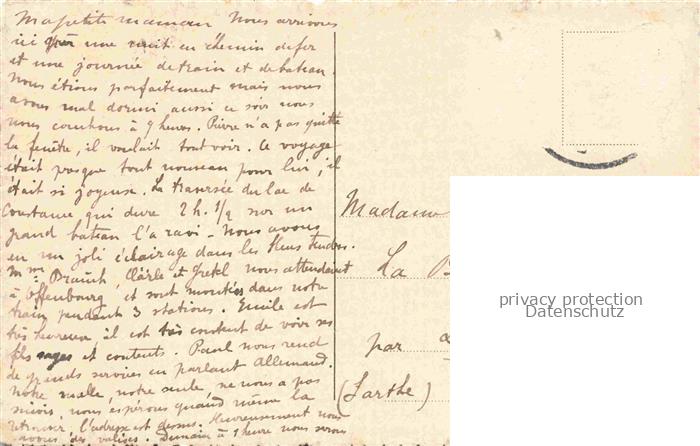 Ma petite maman Nous arrivons
ici après une nuit en chemin de fer
et une journée de train et de bateau.
Nous étions parfaitement mais nous
avons mal dormi aussi ce soir nous
nous couchons à 9 heures. Pierre n'a pas quitté
la fenêtre, il voulait tout voir. Ce voyage
était presque tout nouveau pour lui, il
était si joyeux. La traversée du lac de
Constance qui dure 2 h. 1/2 sur un
grand bateau l'a ravi - Nous avons
eu un joli éclairage dans les bleus tendres.
Mme Brauch, Clärle et Gretel nous attendaient
à Offenbourg et sont montées dans notre
train pendant 3 stations. Emile est
très heureux, il est très content de voir ses
fils sages et contents. Paul nous rend
de grands services en parlant Allemand.
Notre malle, notre seule, ne nous a pas
suivis, nous espérons quand même la
retrouver. L'adresse est dessus. Heureusement nous
avons des valises. Demain à 1 heure nous serons
Madame
La B
par
(Sarthe)
privacy protection
Datenschutz